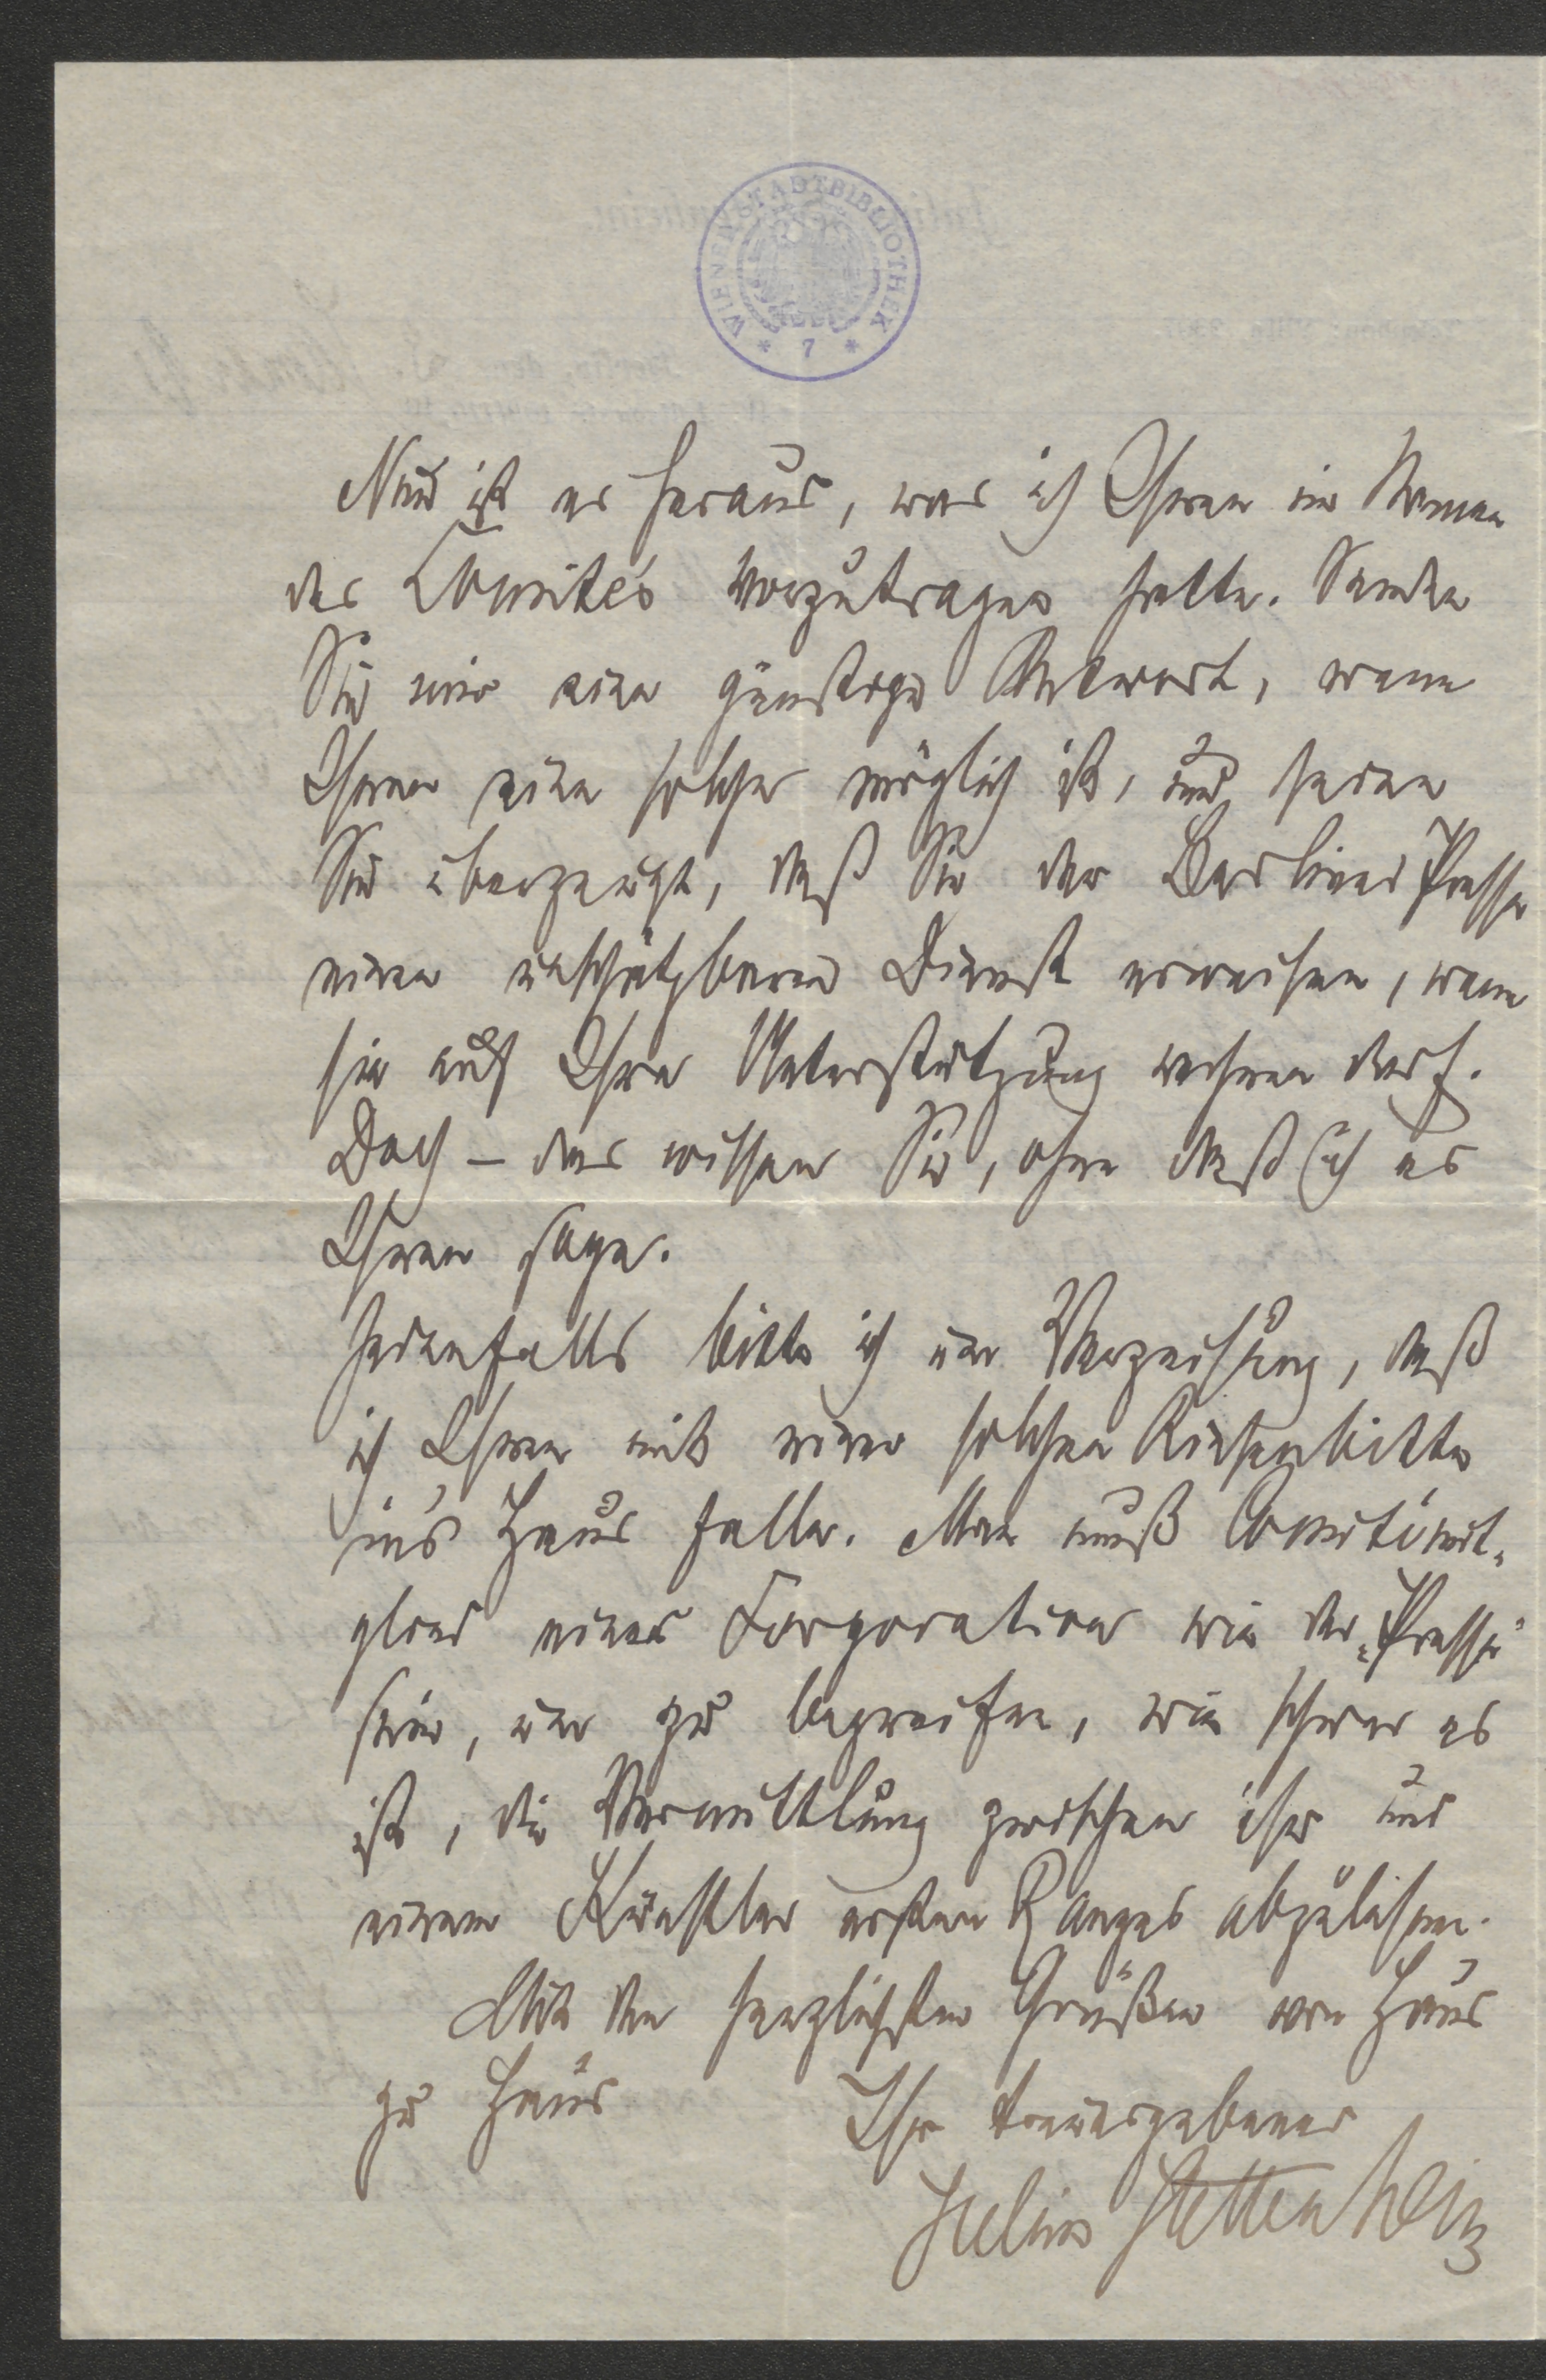 WIENER STADTBIBLIOTHEK
* 7 *
Nun ist es heraus, was ich Ihnen im Namen
des Comités vorzutragen hatte. Senden
Sie mir eine günstige Antwort, wenn
Ihnen eine solche möglich ist, und seien
Sie überzeugt, daß Sie der Berliner Presse
einen unschätzbaren Dienst erweisen, wenn
sie auf Ihre Unterstützung rechnen darf.
Doch – das wissen Sie, ohne daß ich es
Ihnen sage.
Jedenfalls bitte ich um Verzeihung, daß
ich Ihnen mit einer solchen Riesenbitte
in's Haus falle. Man muß Comitémit-
glied einer Corporation wie der „Presse"
sein, um zu begreifen, wie schwer es
ist, die Vermittlung zwischen ihr und
einem Künstler ersten Ranges abzulehnen.
Mit den herzlichsten Grüßen von Haus
zu Haus
Ihr treuergebener
Julius Stettenheim